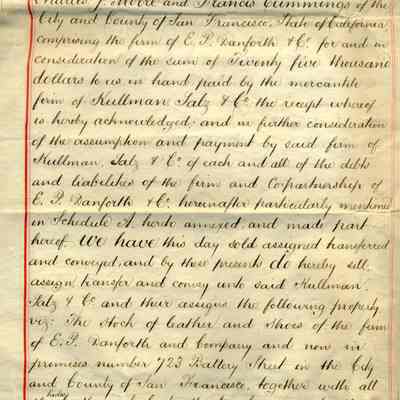 Charles J. Moore and Francis Cummings of the
City and County of San Francisco, State of California
comprising the firm of E. P. Danforth & Co. for and in
consideration of the sum of Twenty five thousand
dollars to us in hand paid by the mercantile
firm of Kullman Salz & Co. the receipt whereof
is hereby acknowledged, and in further consideration
of the assumption and payment by said firm of
Kullman, Salz & Co. of each and all of the debts
and liabilities of the firm and Copartnership of
E. P. Danforth & Co. hereinafter particularly mentioned
in Schedule A. hereto annexed, and made part
hereof, We have this day sold assigned transferred
and conveyed, and by these presents do hereby sell,
assign, transfer and convey unto said Kullman,
Salz & Co. and their assigns the following property
viz: The Stock of leather and Shoes of the firm
of E. P. Danforth and Company and now in
premises number 723 Battery Street in the City
and County of San Francisco, together with all